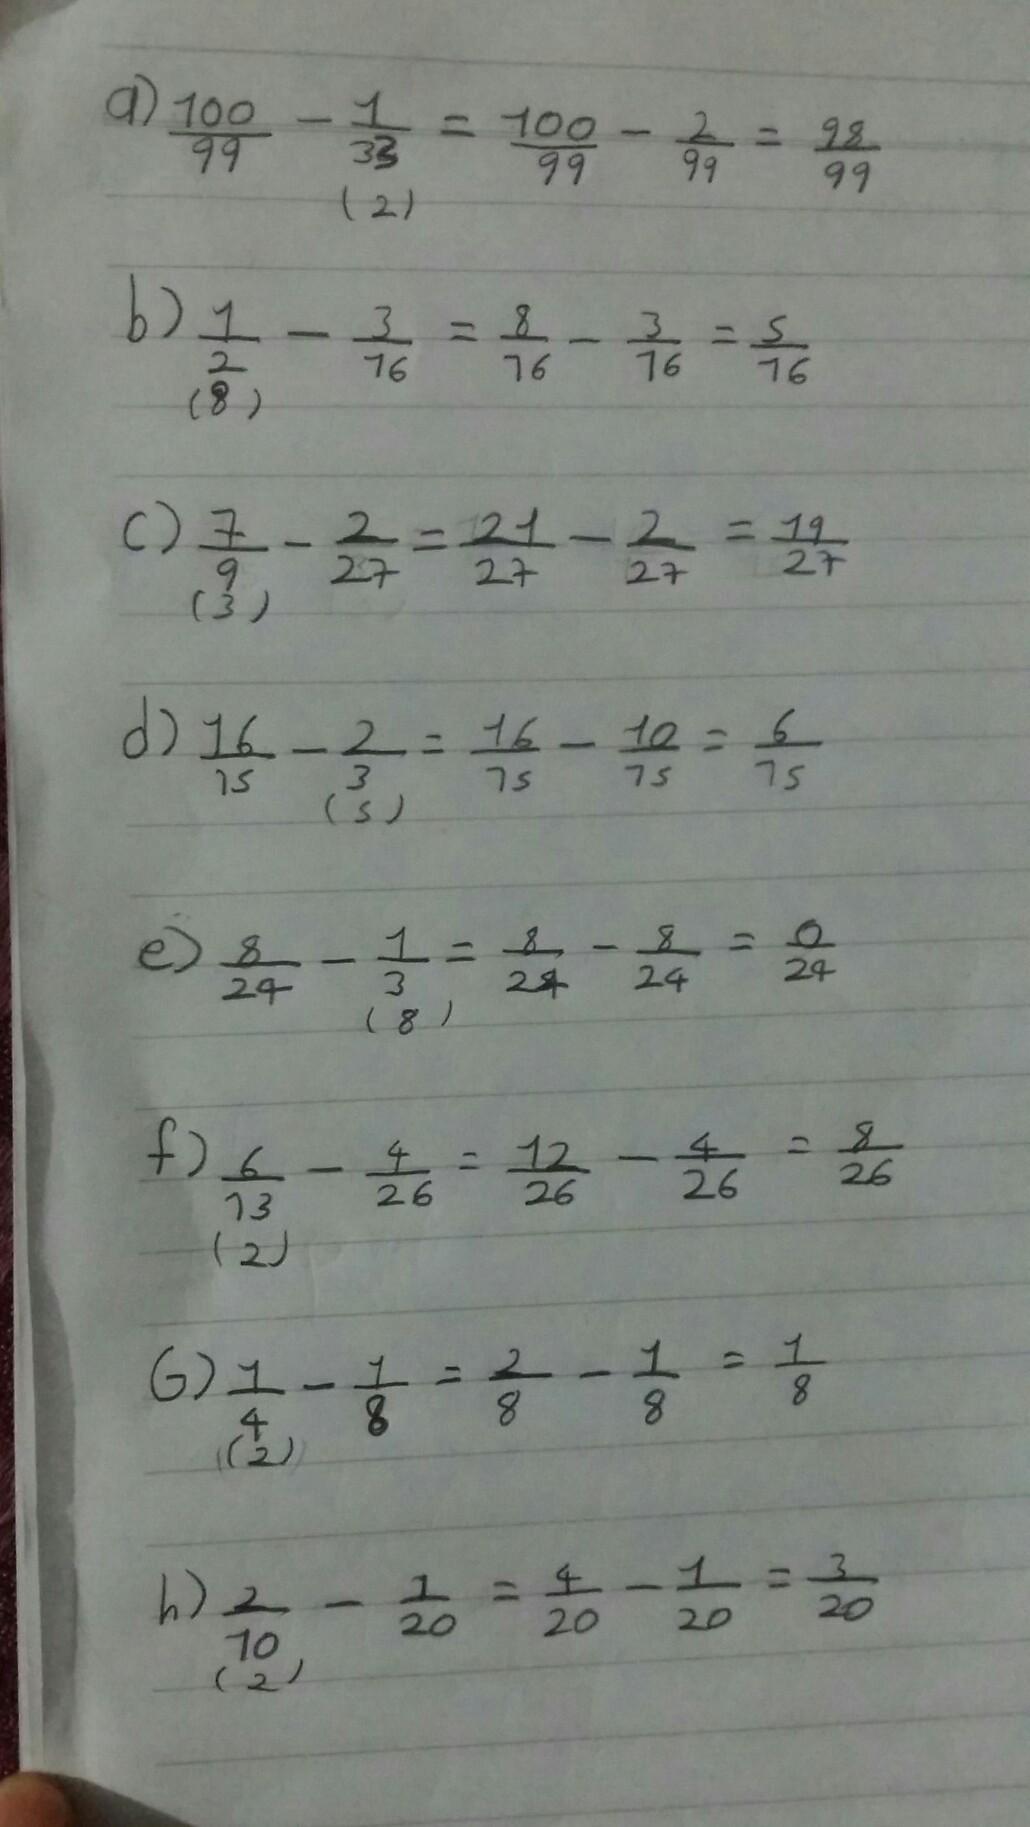 a) 100/99 - 1/33 = 100/99 - 2/99 = 98/99
(2)
b) 1/2 - 3/16 = 8/16 - 3/16 = 5/16
(8)
c) 7/9 - 2/27 = 21/27 - 2/27 = 19/27
(3)
d) 16/15 - 2/3 = 16/15 - 10/15 = 6/15
(5)
e) 8/24 - 1/3 = 8/24 - 8/24 = 0/24
(8)
f) 6/13 - 4/26 = 12/26 - 4/26 = 8/26
(2)
G) 1/4 - 1/8 = 2/8 - 1/8 = 1/8
(2)
h) 2/10 - 1/20 = 4/20 - 1/20 = 3/20
(2)